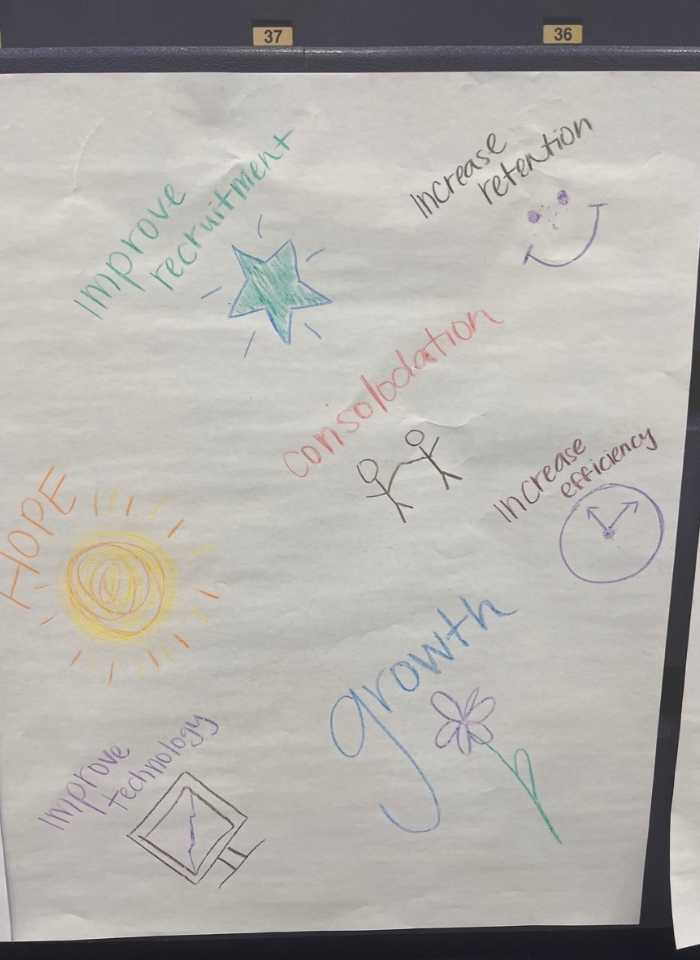 37
36
Improve
recruitment
Increase
retention
consolodation
Increase
efficiency
HOPE
growth
Improve
technology